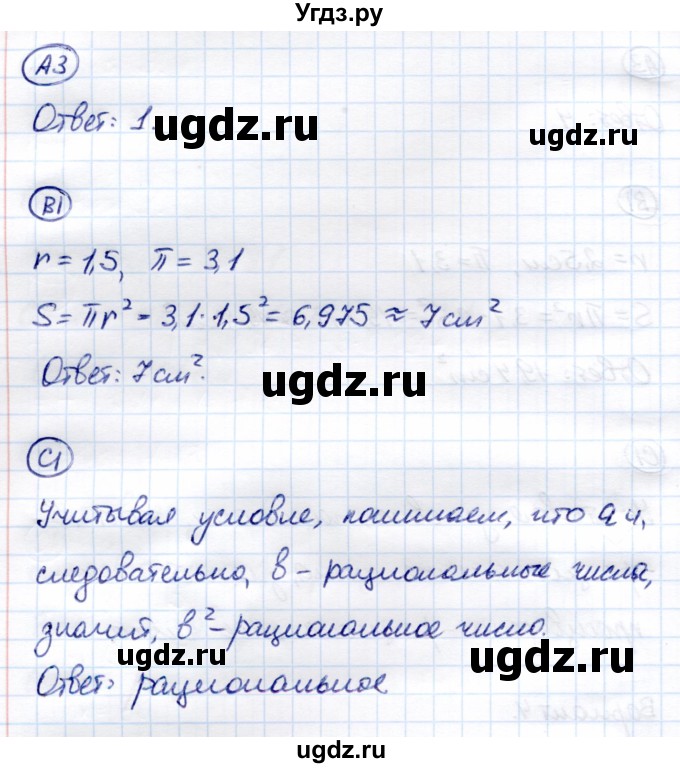 Угдз.ру
А3
Ответ: 1.
ugdz.ru
ugdz.ru
В1
r = 1,5, π = 3,1
S = πr² = 3,1·1,5² = 6,975 ≈ 7 см²
Ответ: 7 см².
ugdz.ru
С1
Учитывая условие, понимаем, что а и,
следовательно, в – рациональные числа,
значит, в² – рациональное число.
ugdz.ru
ugdz.ru
Ответ: рациональное
ugdz.ru